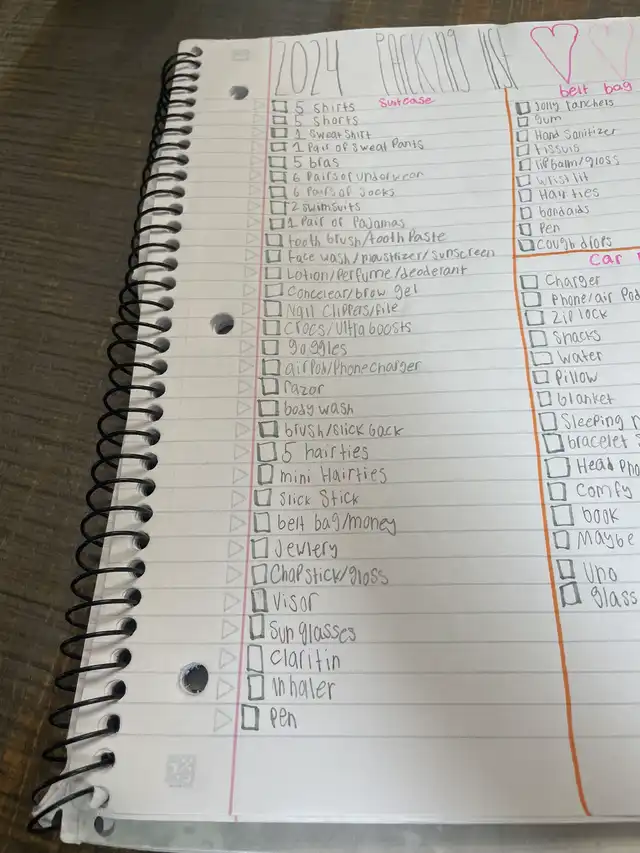 2024 PACKING list
suitcase
5 shirts
5 shorts
1 sweatshirt
1 Pair of sweat Pants
5 bras
6 Pairs of underwear
6 Pairs of socks
2 swimsuits
1 Pair of Pajamas
tooth brush/tooth Paste
Face wash/moustizer/sunscreen
Lotion/Perfume/deoderant
Concelear/brow gel
Nail Clippers/file
Crocs/Ultraboosts
goggles
airPod/Phone charger
razor
body wash
brush/slick back
5 hairties
mini Hairties
Slick Stick
belt bag/money
Jewlery
Chapstick/gloss
Visor
Sunglasses
Claritin
Inhaler
Pen
belt bag
Jolly ranchers
Gum
Hand Sanitizer
tissuis
lip balm/gloss
Hair ties
bandaids
Pen
Cough drops
Car
Charger
Phone/air Pod
Zip lock
Snacks
Water
Pillow
blanket
Sleeping
bracelet
Head Pho
Comfy
book
Maybe
Uno
glass